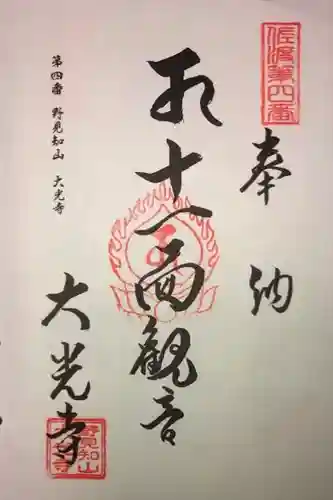 佐渡第四番
奉納
十一面観音
大光寺
第四番 野見知山 大光寺
野見知山
大光寺